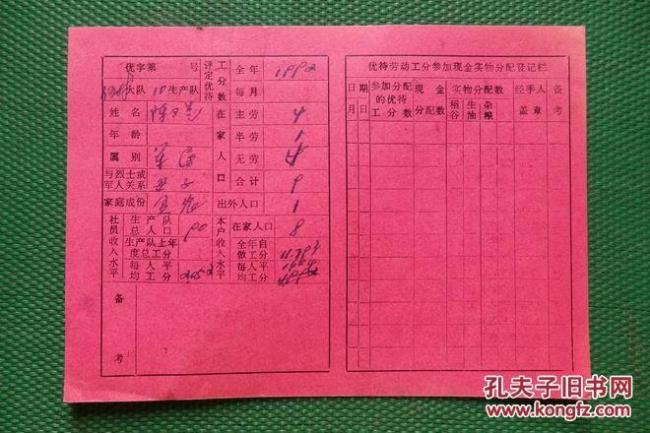 优字第 号
评定优待工分数
全年
每月
大队 10生产队
姓名
在家人口
主劳 4
年龄
半劳 1
属别 军属
无劳 4
与烈士或军人关系 父子
合计 9
家庭成份
出外人口 1
社员收入水平
生产队总人口 90
本户收入水平
在家人口 8
生产队上年度总工分
全年自做工分
每人平均工分
每人平均工分
备考
优待劳动工分参加现金实物分配登记栏
日期
月 日
参加分配的优待工分数
现金分配数
实物分配数
稻谷
生油
杂粮
经手人盖章
备考
孔夫子旧书网
www.kongfz.com